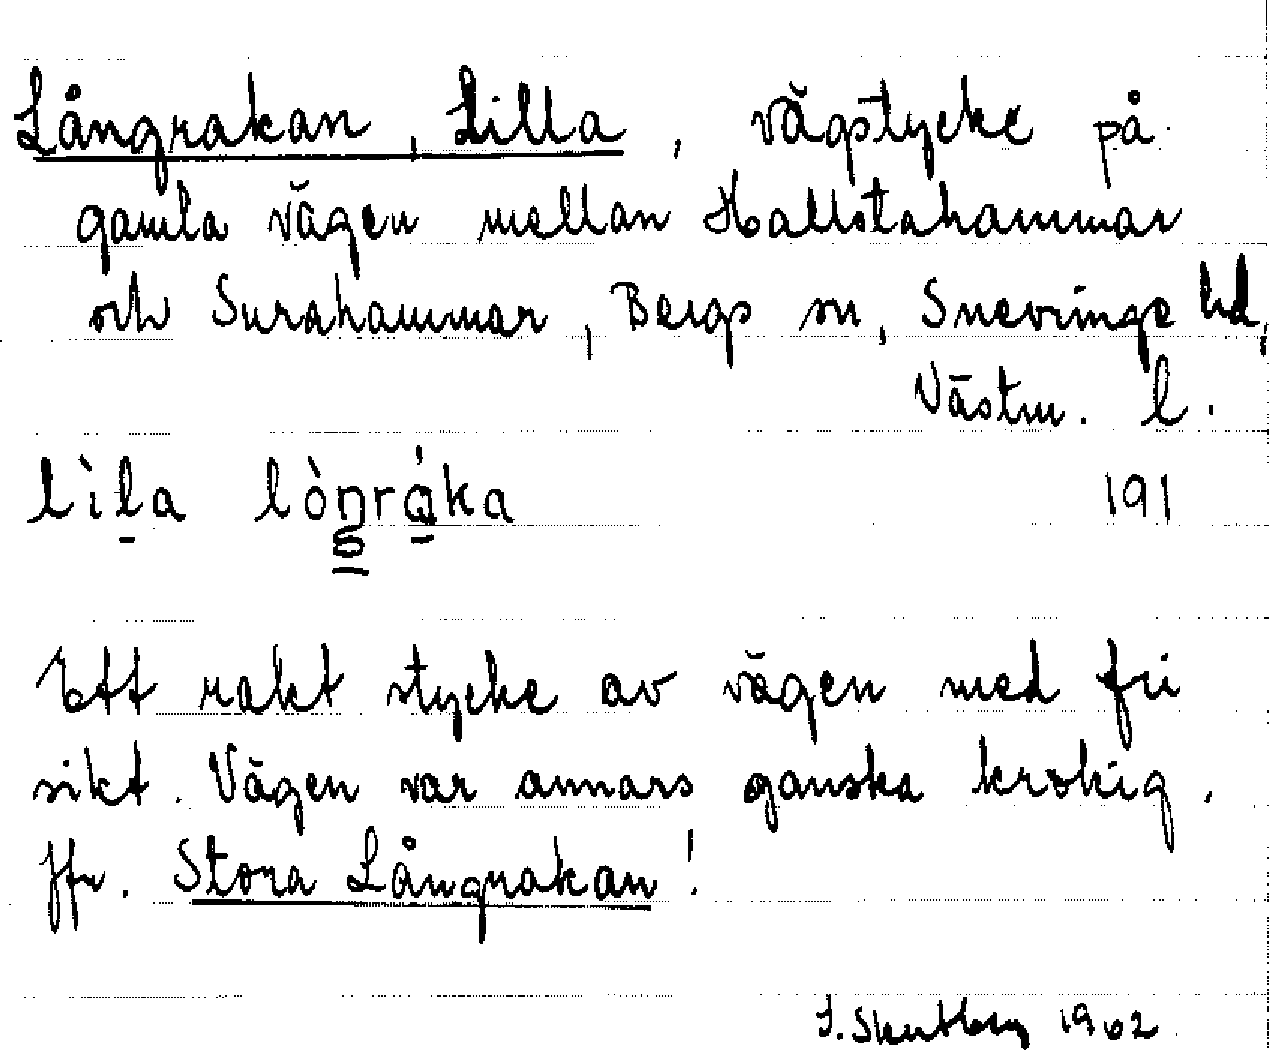 Långrakan, Lilla, vägstycke på
gamla vägen mellan Hallstahammar
och Surahammar, Bergs sn, Snevringe hd,
Västm. l.
lìla lòŋráka 191
Ett rakt stycke av vägen med fri
sikt. Vägen var annars ganska krokig.
Jfr. Stora Långrakan!
1962